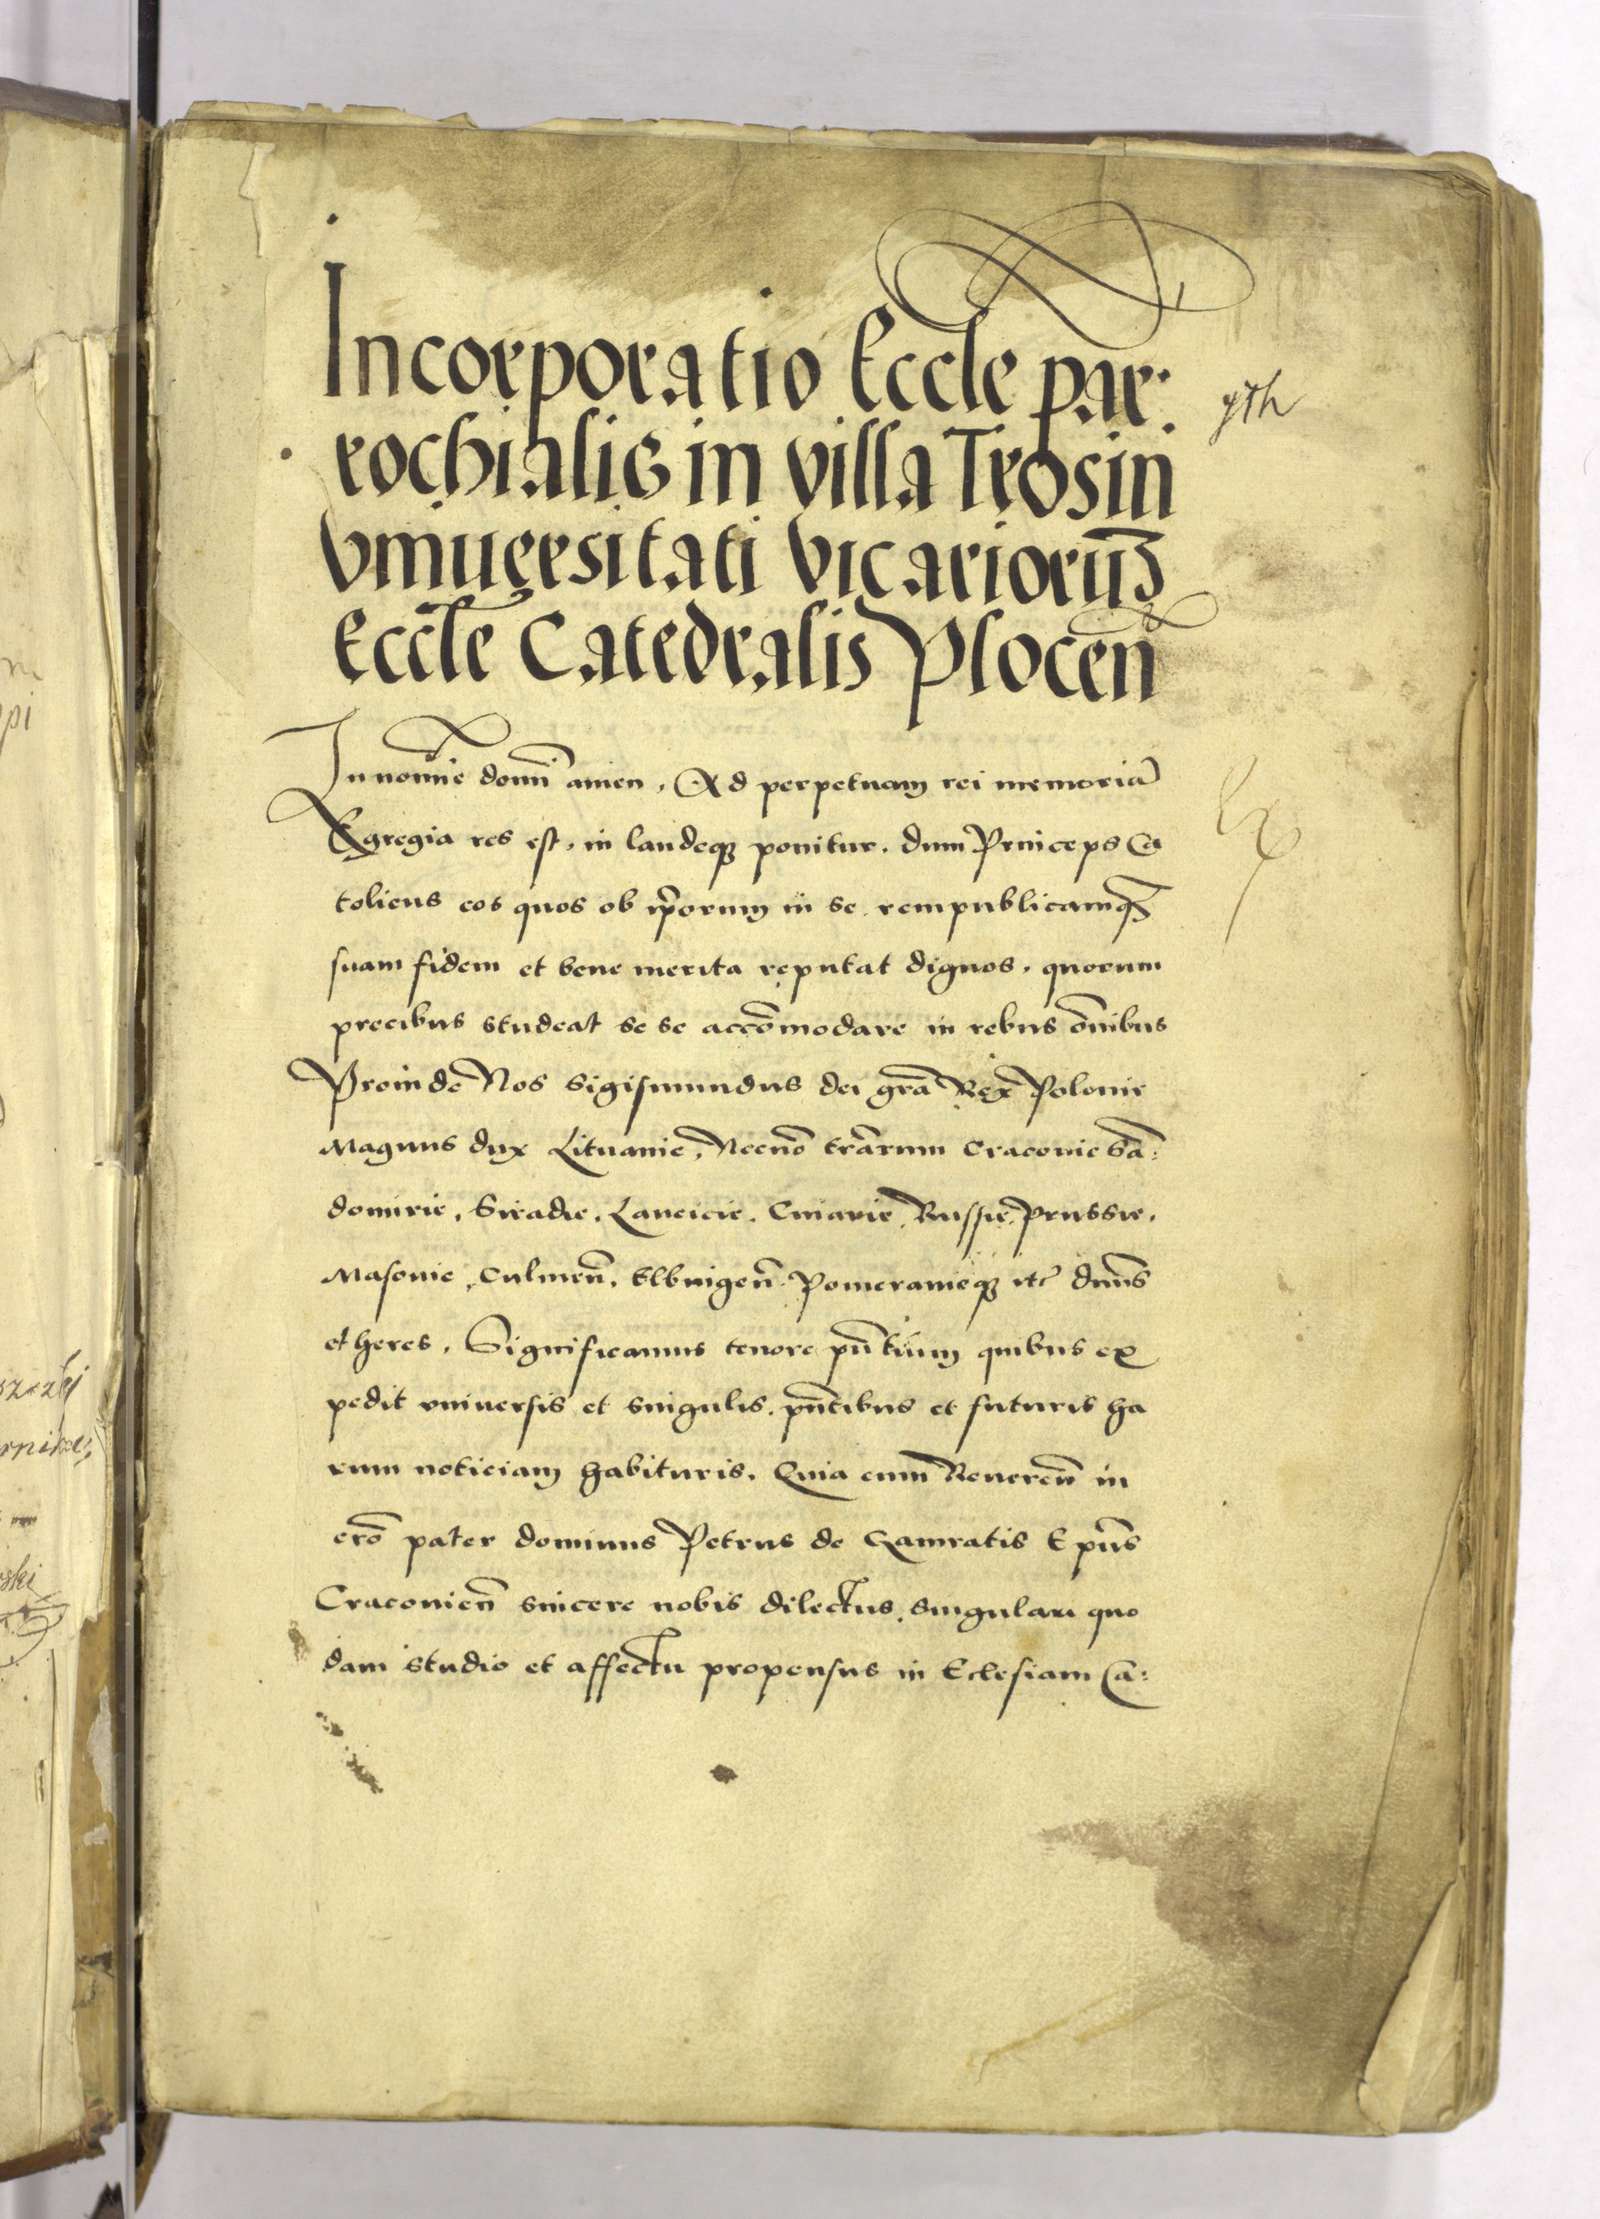 Incorporatio Eccle par:
rochialis in villa Trosin
vniuersitati vicarioruʒ
Eccle Catedralis Plocen̄
In nomīe domī amen, Ad perpetuam rei memoriā
Egregia res est, in laudeqꝫ ponitur, dum Princeps Ca
tolicus eos quos ob ip̄orum in se rempublicamqꝫ
suam fidem et bene merita reputat dignos, quorum
precibus studeat se se accōmodare in rebus ōnibus
Proinde Nos Sigismundus dei grā Rex Polonie
Magnus dux Lituanie, Necnō trārum Cracouie Sā:
domirie, Siradie, Lancicie, Cuiauie, Russie, Prussie,
Masouie, Culmen̄, Elbingen̄ Pomeranieqꝫ etc̄ dn̄us
et heres, Significamus tenore pn̄tium quibus ex
pedit vniuersis et singulis, pn̄tibus et futuris ha
rum noticiam habituris, Quia cum Reueren̄ in
crō pater dominus Petrus de Gamratis Ep̄us
Cracouien̄ sincere nobis dilectus, singulari quo
dam studio et affectu propensus in Eclesiam Ca: